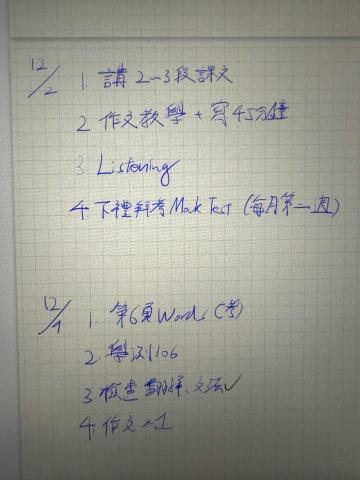 12/2 1. 講 2~3段課文
2 作文教學 + 寫45分鐘
3 Listening
4. 下禮拜考 Mok Test (每月第一週)
12/9 1. 第6頁 Words (考)
2. 學測106
3 檢查翻譯、文法✓
4. 作文×1